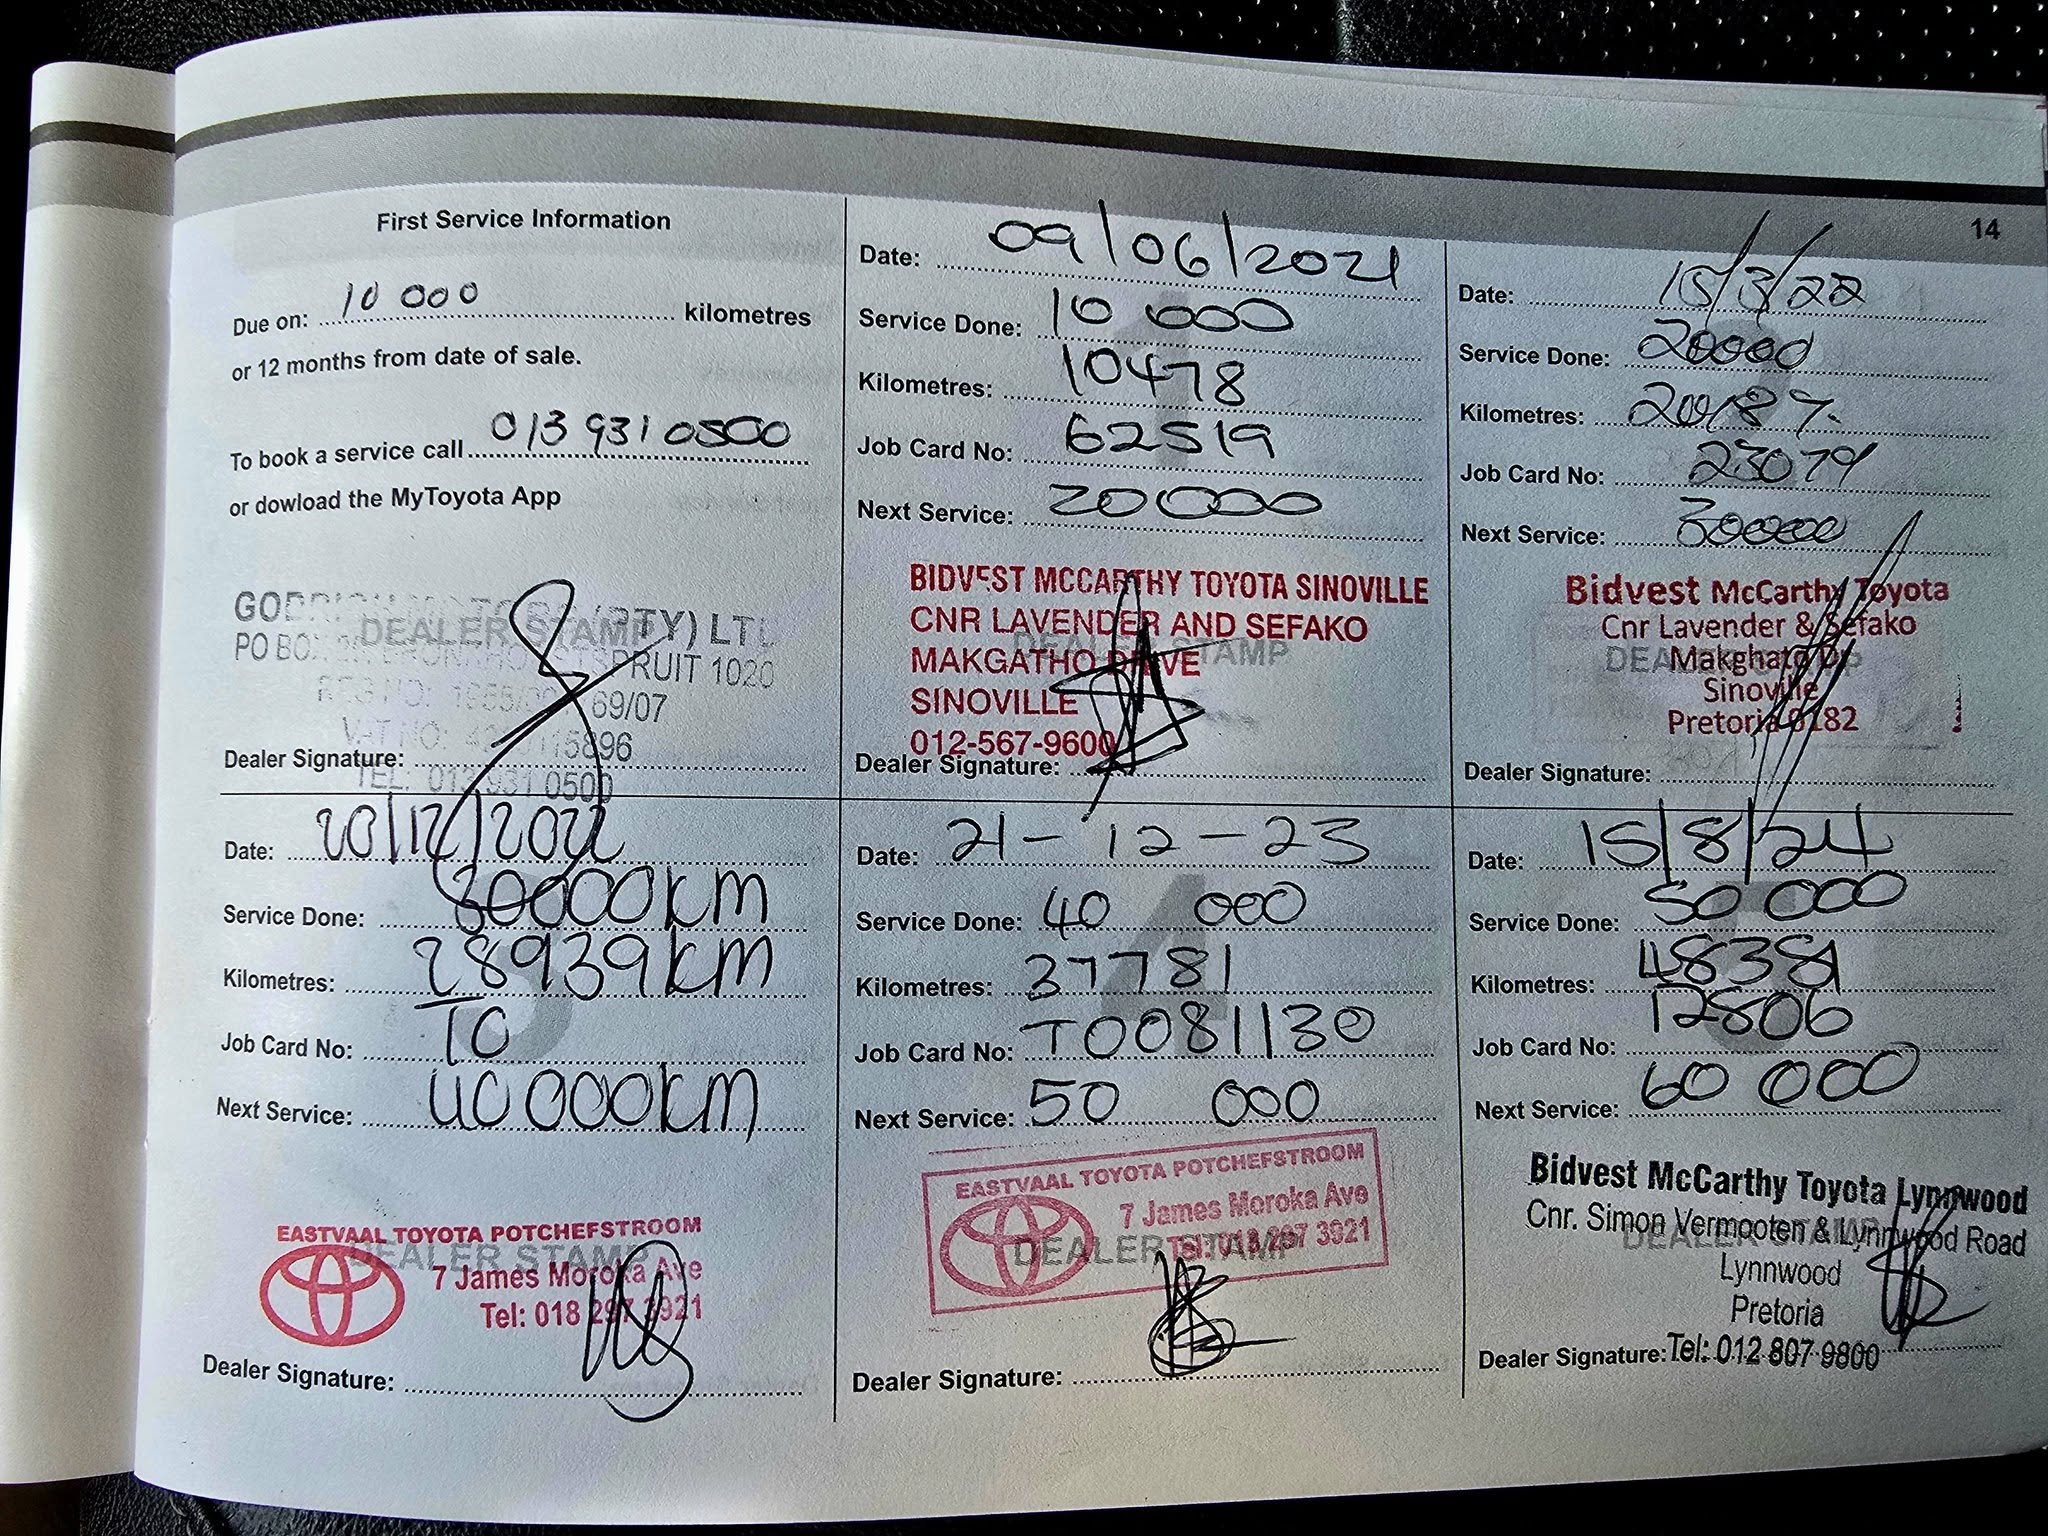 14
First Service Information
Due on: 10 000 kilometres
or 12 months from date of sale.
To book a service call 013 931 0500
or dowload the MyToyota App
DEALER STAMP
(PTY) LTD
PO BOX SPRUIT 1020
69/07
TEL: 013 931 0500
Dealer Signature:
Date: 09/06/2021
Service Done: 10 000
Kilometres: 10478
Job Card No: 62519
Next Service: 20000
BIDVEST MCCARTHY TOYOTA SINOVILLE
CNR LAVENDER AND SEFAKO
MAKGATHO DRIVE
SINOVILLE
012-567-9600
DEALER STAMP
Dealer Signature:
Date: 15/3/22
Service Done: 20000
Kilometres: 20187
Job Card No: 23079
Next Service: 30000
Bidvest McCarthy Toyota
Cnr Lavender & Sefako
Makghato Dr
Sinoville
Pretoria 0182
DEALER STAMP
Dealer Signature:
3
Date: 20/12/2022
Service Done: 30000km
Kilometres: 28939km
Job Card No: TO
Next Service: 40 000km
EASTVAAL TOYOTA POTCHEFSTROOM
DEALER STAMP
7 James Moroka Ave
Tel: 018 297 3921
Dealer Signature:
4
Date: 21-12-23
Service Done: 40 000
Kilometres: 37781
Job Card No: TO081130
Next Service: 50 000
EASTVAAL TOYOTA POTCHEFSTROOM
7 James Moroka Ave
Tel: 018 297 3921
DEALER STAMP
Dealer Signature:
5
Date: 15/8/24
Service Done: 50 000
Kilometres: 48381
Job Card No: 12806
Next Service: 60 000
Bidvest McCarthy Toyota Lynnwood
Cnr. Simon Vermooten & Lynnwood Road
DEALER STAMP
Lynnwood
Pretoria
Dealer Signature: Tel: 012 807 9800